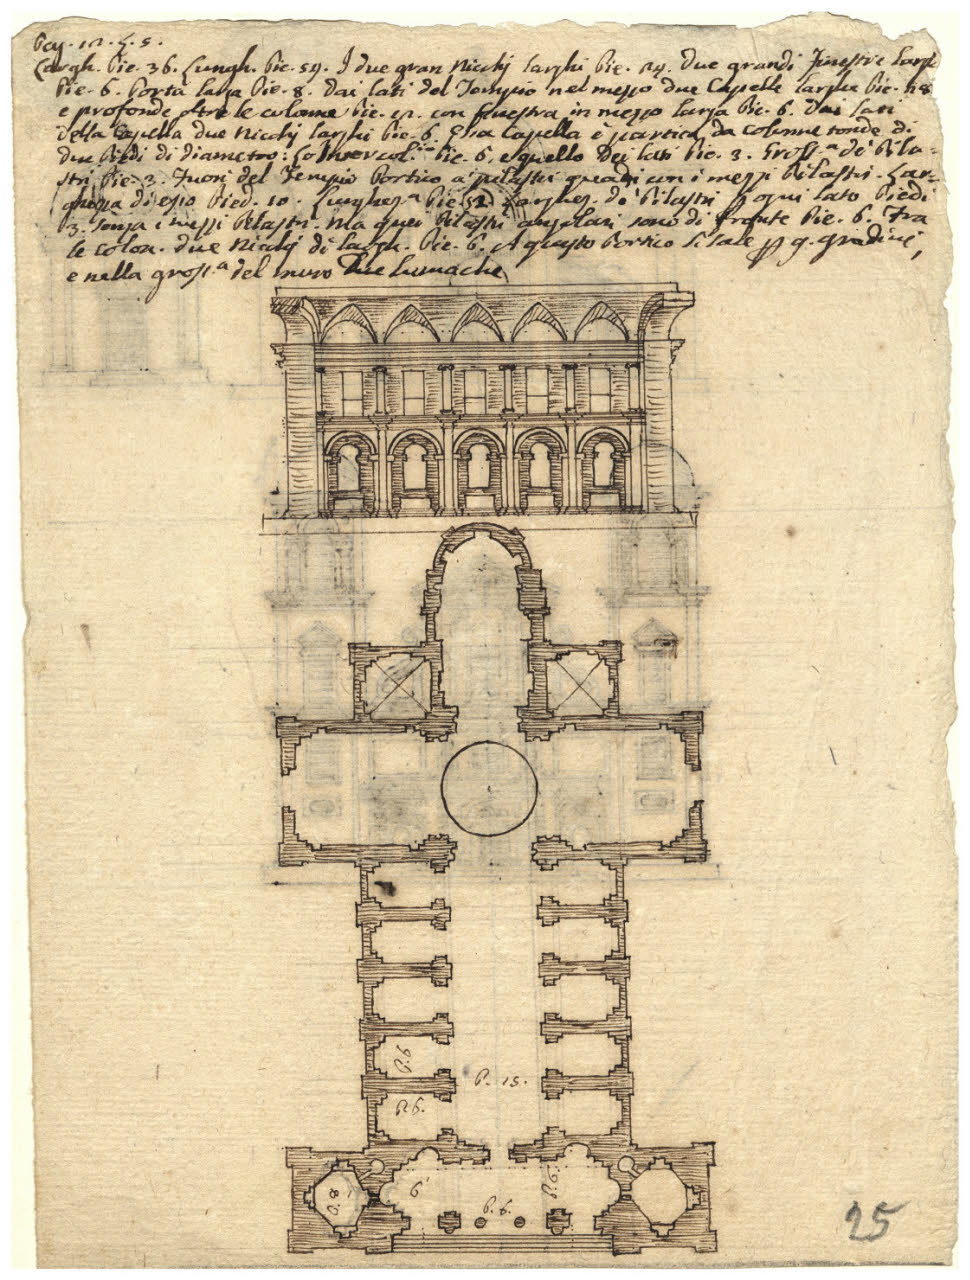 Largh. Pie. 36. Lungh. Pie. 54. I due gran Nichj larghi Pie. 24. Due grandi Finestre larg.
Pie. 6. Porta larga Pie. 8. Dai lati del Tempio nel mezzo due Capelle larghe Pie. 18
e profonde oltre le colonne Pie. 12. con finestra in mezzo larga Pie. 6. Dai lati
della Capella due Nichj larghi Pie. 6. Essa Capella è partita da colonne tonde di
due Piedi di diametro: Pie. 6. e quello dei lati Pie. 3. Gross.a de' Pila-
stri Pie. 3. Fuori del Tempio Portico a pilastri quadri con i mezzi Pilastri. Lar-
ghezza di esso Pied. 10. Pie. 52. Larghez. de' Pilastri ogni lato Piedi
3. senza i mezzi Pilastri. Ma quei Pilastri angolari sono di fronte Pie. 6. Fra
le colon. due Nichj di largh. Pie. 6. A questo Portico si sale p 9. gradini,
e nella gross.a del muro Due lumache
P. 6
P. 15.
P. 6.
P. 8
6'
P. 6.
P. 6.
25